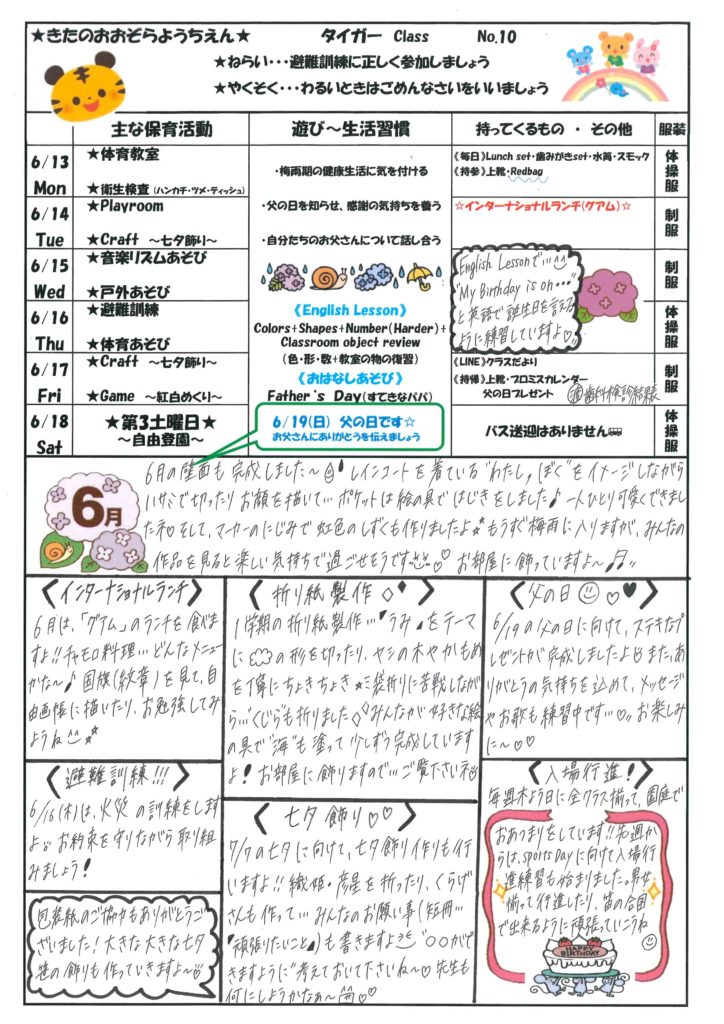 ★きたのおおぞらようちえん★ タイガー Class No.10
★ねらい・・・避難訓練に正しく参加しましょう
★やくそく・・・わるいときはごめんなさいをいいましょう
主な保育活動 遊び～生活習慣 持ってくるもの ・ その他 服装
6/13 Mon
★体育教室
★衛生検査 (ハンカチ・ツメ・ティッシュ)
《毎日》Lunch set・歯みがきset・水筒・スモック
《持参》上靴・Redbag
体操服
6/14 Tue
★Playroom
★Craft ～七夕飾り～
☆インターナショナルランチ(グアム)☆
制服
6/15 Wed
★音楽リズムあそび
★戸外あそび
制服
6/16 Thu
★避難訓練
★体育あそび
体操服
6/17 Fri
★Craft ～七夕飾り～
★Game ～紅白めくり～
《LINE》クラスだより
《持帰》上靴・プロミスカレンダー
父の日プレゼント
歯科検診結果
制服
6/18 Sat
★第3土曜日★
～自由登園～
バス送迎はありません
体操服
・梅雨期の健康生活に気を付ける
・父の日を知らせ、感謝の気持ちを養う
・自分たちのお父さんについて話し合う
《English Lesson》
Colors+Shapes+Number(Harder)+
Classroom object review
(色・形・数+教室の物の復習)
《おはなしあそび》
Father's Day(すてきなパパ)
6/19(日) 父の日です☆
お父さんにありがとうを伝えましょう
English Lessonで…
"My Birthday is on・・・"
と英語で誕生日を言える
ように練習していますよ♡
6月
6月の壁面も完成しました～ レインコートを着ている"わたし,ぼく"をイメージしながら
ハサミで切ったりお顔を描いて… ポケットは絵の具ではじきをしました♪ 一人ひとり可愛くできまし
たネ♡ そして、マーカーのにじみで虹色のしずくも作りましたよ もうすぐ梅雨に入りますが、みんなの
作品を見ると楽しい気持ちで過ごせそうです♡ お部屋に飾っていますよ～♬
〈インターナショナルランチ〉
6月は、「グアム」のランチを食べま
すよ!! チャモロ料理…どんなメニュー
かな～♪ 国旗(紋章)を見て、自
由画帳に描いたり、お勉強してみ
ようね
〈避難訓練!!!〉
6/16(木)は、火災の訓練をします
よ お約束を守りながら取り組
みましょう!
包装紙のご協力もありがとうご
ざいました! 大きな大きな七夕
笹の飾りも作っていきますよ～
〈折り紙製作〉
1学期の折り紙製作…『うみ』をテーマ
に の形を切ったり、ヤシの木やかもめ
を丁寧にちょきちょき☆ 袋折りに苦戦しなが
ら…"くじら"も折りました みんなが好きな絵
の具で"海"も塗って少しずつ完成しています
よ! お部屋に飾りますので…ご覧下さいネ
〈七夕飾り♡♡〉
7/7の七夕に向けて、七夕飾り作りも行
いますよ!! 織姫・彦星を折ったり、くらげ
さんも作って…みんなのお願い事(短冊…
『頑張りたいこと』)も書きますよ "○○がで
きますように"考えておいて下さいね～♡ 先生も
何にしようかなぁ～♡
〈父の日 ♡♥〉
6/19の父の日に向けて、ステキなプ
レゼントが完成しましたよ また、あ
りがとうの気持ちを込めて、メッセージ
やお歌も練習中です…♡ お楽しみ
に～♡♡
〈入場行進!〉
毎週木よう日に全クラス揃って、園庭で
おあつまりをしています!! 先週か
らは、Sports Dayに向けて入場行
進練習も始まりました。男女
揃って行進したり、笛の合図
で出来るように頑張っていこうね
HAPPY
BIRTHDAY